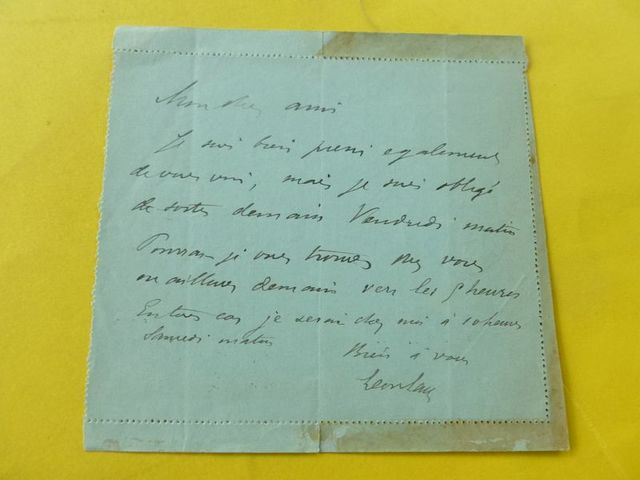 Mon cher ami
Je suis bien pressé egalement
de vous voir, mais je suis obligé
de sortir demain Vendredi matin
Pourrai-je vous trouver chez vous
ou ailleurs demain vers les 5 heures
En tous cas je serai chez moi à 10 heures
Samedi matin
Bien à vous